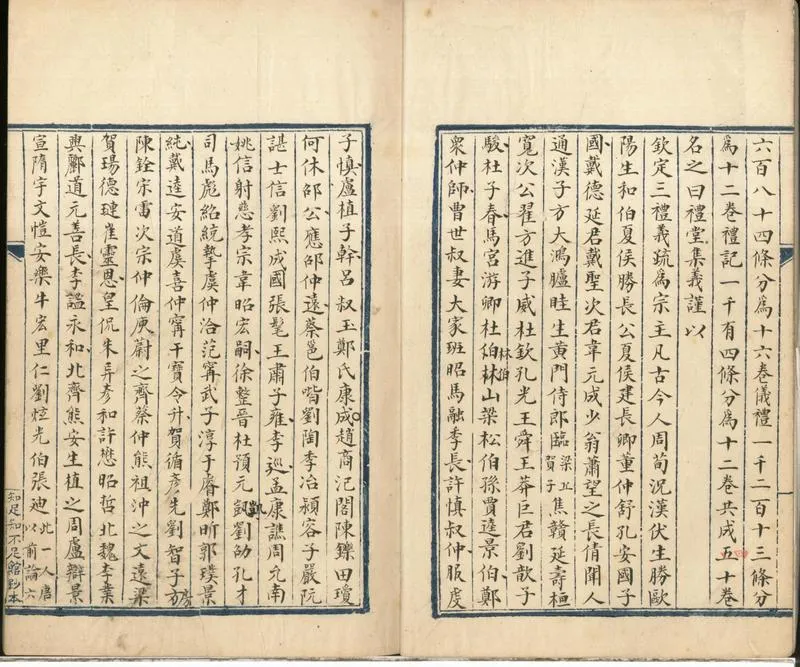 六百八十四條分為十六卷儀禮一千二百十三條分
為十二卷禮記一千有四條分為十二卷共成五十卷
名之曰禮堂集義謹以
欽定三禮義疏為宗主凡古今人周荀況漢伏生勝歐
陽生和伯夏侯勝長公夏侯建長卿董仲舒孔安國子
國戴德延君戴聖次君韋元成少翁蕭望之長倩聞人
通漢子方大鴻臚眭生黃門侍郎臨梁丘賀子焦贛延壽桓
寬次公翟方進子威杜欽孔光王舜王莽巨君劉歆子
駿杜子春馬宮游卿杜林伯山梁松伯孫賈逵景伯鄭
林伯
衆仲師曹世叔妻大家班昭馬融季長許慎叔仲服虔
子慎盧植子幹呂叔玉鄭氏康成趙商氾閣陳鑠田瓊
何休邵公應邵仲遠蔡邕伯喈劉陶李冶潁容子嚴阮
諶士信劉熙成國張髦王肅子雍李巡孟康譙周允南
姚信射慈孝宗韋昭宏嗣徐整晉杜預元凱劉劭孔才
凱
司馬彪紹統摯虞仲洽范甯武子淳于睿鄭昕郭璞景
純戴逵安道虞喜仲甯干寶令升賀循彦先劉智子房
房
陳銓宋雷次宗仲倫庾蔚之齊蔡仲熊祖沖之文遠梁
賀瑒德璉崔靈恩皇侃朱异彥和許懋昭哲北魏李業
興酈道元善長李謐永和北齊熊安生植之周盧辯景
宣隋宇文愷安樂牛宏里仁劉炫光伯張逖此一人唐以前論六
知足知不足館鈔本